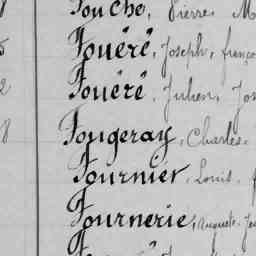 Fouche, Pierre, M
Fouéré, Joseph, franço
2 Fouéré, Julien, Jos
8 Fougeray, Charles.
Fournier, Louis, f
Fournerie, Auguste, Je